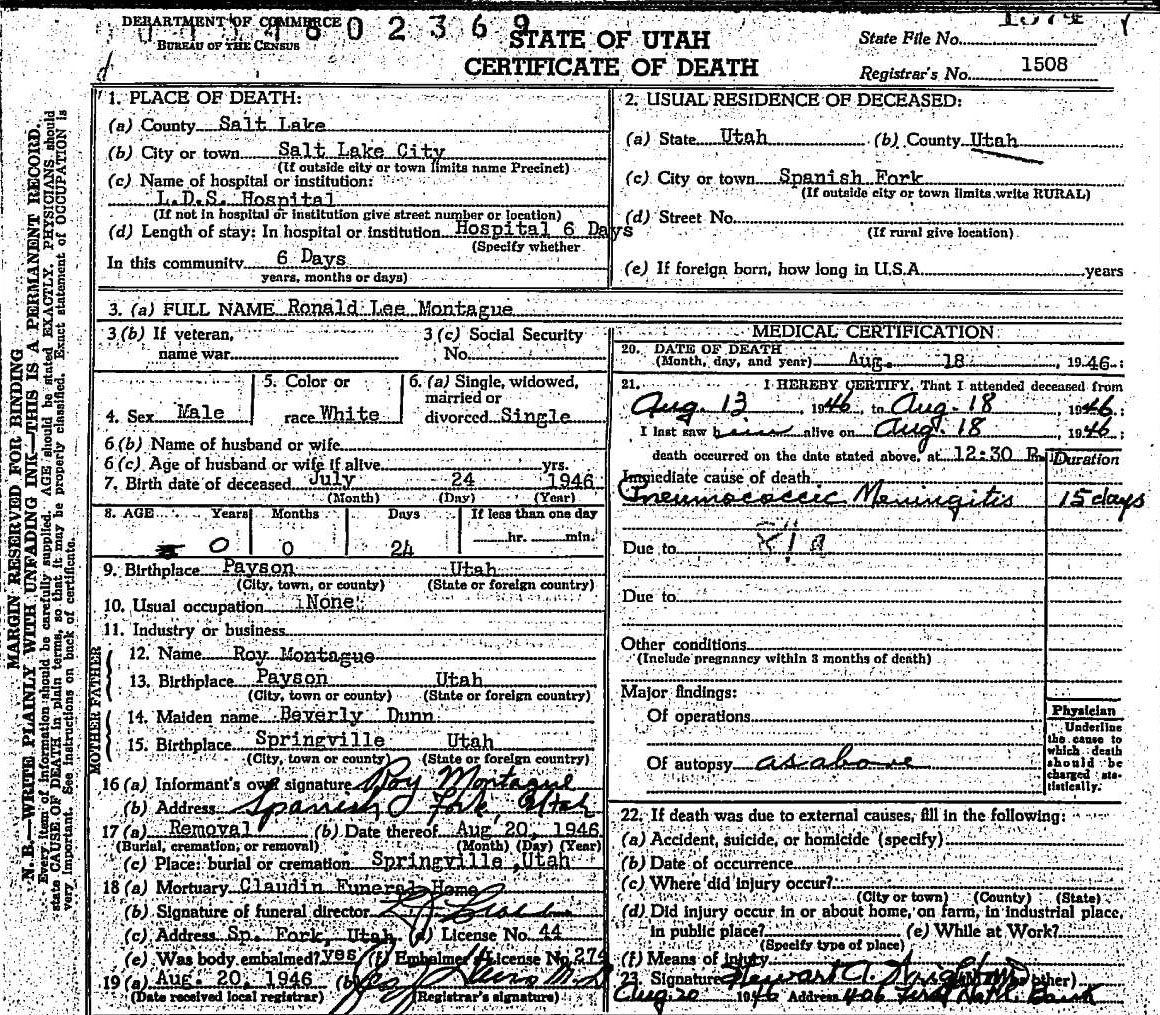 DEPARTMENT OF COMMERCE
BUREAU OF THE CENSUS
0 2 3 6 9
STATE OF UTAH
CERTIFICATE OF DEATH
State File No.
Registrar's No. 1508
MARGIN RESERVED FOR BINDING
N. B.—WRITE PLAINLY WITH UNFADING INK—THIS IS A PERMANENT RECORD.
Every item of information should be carefully supplied. AGE should be stated EXACTLY. PHYSICIANS should
state CAUSE OF DEATH in plain terms, so that it may be properly classified. Exact statement of OCCUPATION is
very important. See instructions on back of certificate.
1. PLACE OF DEATH:
(a) County Salt Lake
(b) City or town Salt Lake City
(If outside city or town limits name Precinct)
(c) Name of hospital or institution:
L.D.S. Hospital
(If not in hospital or institution give street number or location)
(d) Length of stay: In hospital or institution Hospital 6 Days
(Specify whether
In this community 6 Days
years, months or days)
2. USUAL RESIDENCE OF DECEASED:
(a) State Utah (b) County Utah
(c) City or town Spanish Fork
(If outside city or town limits write RURAL)
(d) Street No.
(If rural give location)
(e) If foreign born, how long in U.S.A. years
3. (a) FULL NAME Ronald Lee Montague
3 (b) If veteran,
name war
3 (c) Social Security
No.
4. Sex Male
5. Color or
race White
6. (a) Single, widowed,
married or
divorced Single
6 (b) Name of husband or wife
6 (c) Age of husband or wife if alive yrs.
7. Birth date of deceased July 24 1946
(Month) (Day) (Year)
8. AGE Years Months Days If less than one day
0 0 24 hr. min.
9. Birthplace Payson Utah
(City, town, or county) (State or foreign country)
10. Usual occupation None
11. Industry or business
FATHER
12. Name Roy Montague
13. Birthplace Payson Utah
(City, town or county) (State or foreign country)
MOTHER
14. Maiden name Beverly Dunn
15. Birthplace Springville Utah
(City, town or county) (State or foreign country)
16 (a) Informant's own signature Roy Montague
(b) Address Spanish Fork, Utah
17 (a) Removal (b) Date thereof Aug 20, 1946
(Burial, cremation, or removal) (Month) (Day) (Year)
(c) Place: burial or cremation Springville, Utah
18 (a) Mortuary Claudin Funeral Home
(b) Signature of funeral director
(c) Address Sp. Fork, Utah (d) License No. 44
(e) Was body embalmed? yes (f) Embalmer License No. 274
19 (a) Aug. 20, 1946 (b)
(Date received local registrar) (Registrar's signature)
MEDICAL CERTIFICATION
20. DATE OF DEATH
(Month, day, and year) Aug. 18 1946:
21. I HEREBY CERTIFY, That I attended deceased from
Aug. 13, 1946, to Aug. 18 1946:
I last saw him alive on Aug. 18 1946:
death occurred on the date stated above, at 12:30 P. Duration
Immediate cause of death
Pneumococcic Meningitis 15 days
Due to
Due to
Other conditions
(Include pregnancy within 3 months of death)
Major findings:
Of operations
Of autopsy as above
Physician
Underline
the cause to
which death
should be
charged sta-
tistically.
22. If death was due to external causes, fill in the following:
(a) Accident, suicide, or homicide (specify)
(b) Date of occurrence
(c) Where did injury occur?
(City or town) (County) (State)
(d) Did injury occur in or about home, on farm, in industrial place,
in public place? (e) While at Work?
(Specify type of place)
(f) Means of injury
23 Signature Stewart A. Wright other)
Aug 20 1946 Address 406 First Natl. Bank